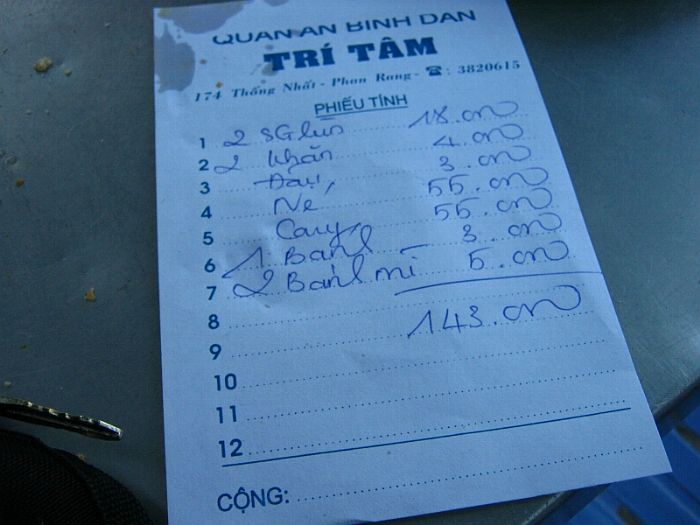 QUÁN ĂN BÌNH DÂN
TRÍ TÂM
174 Thống Nhất - Phan Rang - ☎ : 3820615
PHIẾU TÍNH
1 2 SG lùn 18.000
2 2 khăn 4.000
3 Đậu 3.000
4 Ne 55.000
5 Cary 55.000
6 1 Bánh 3.000
7 2 Bánh mì 5.000
8 143.000
9
10
11
12
CỘNG: